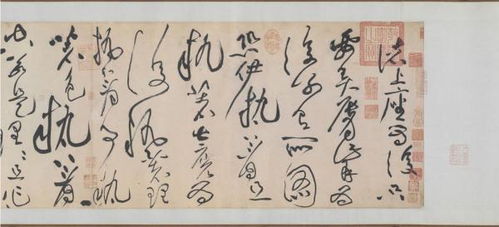 諸上座為復只
要弄唇觜為
復別有所圖
恐伊執著且
執著甚麼為
復執著理
執著事執
著色執著
空若是理理且作